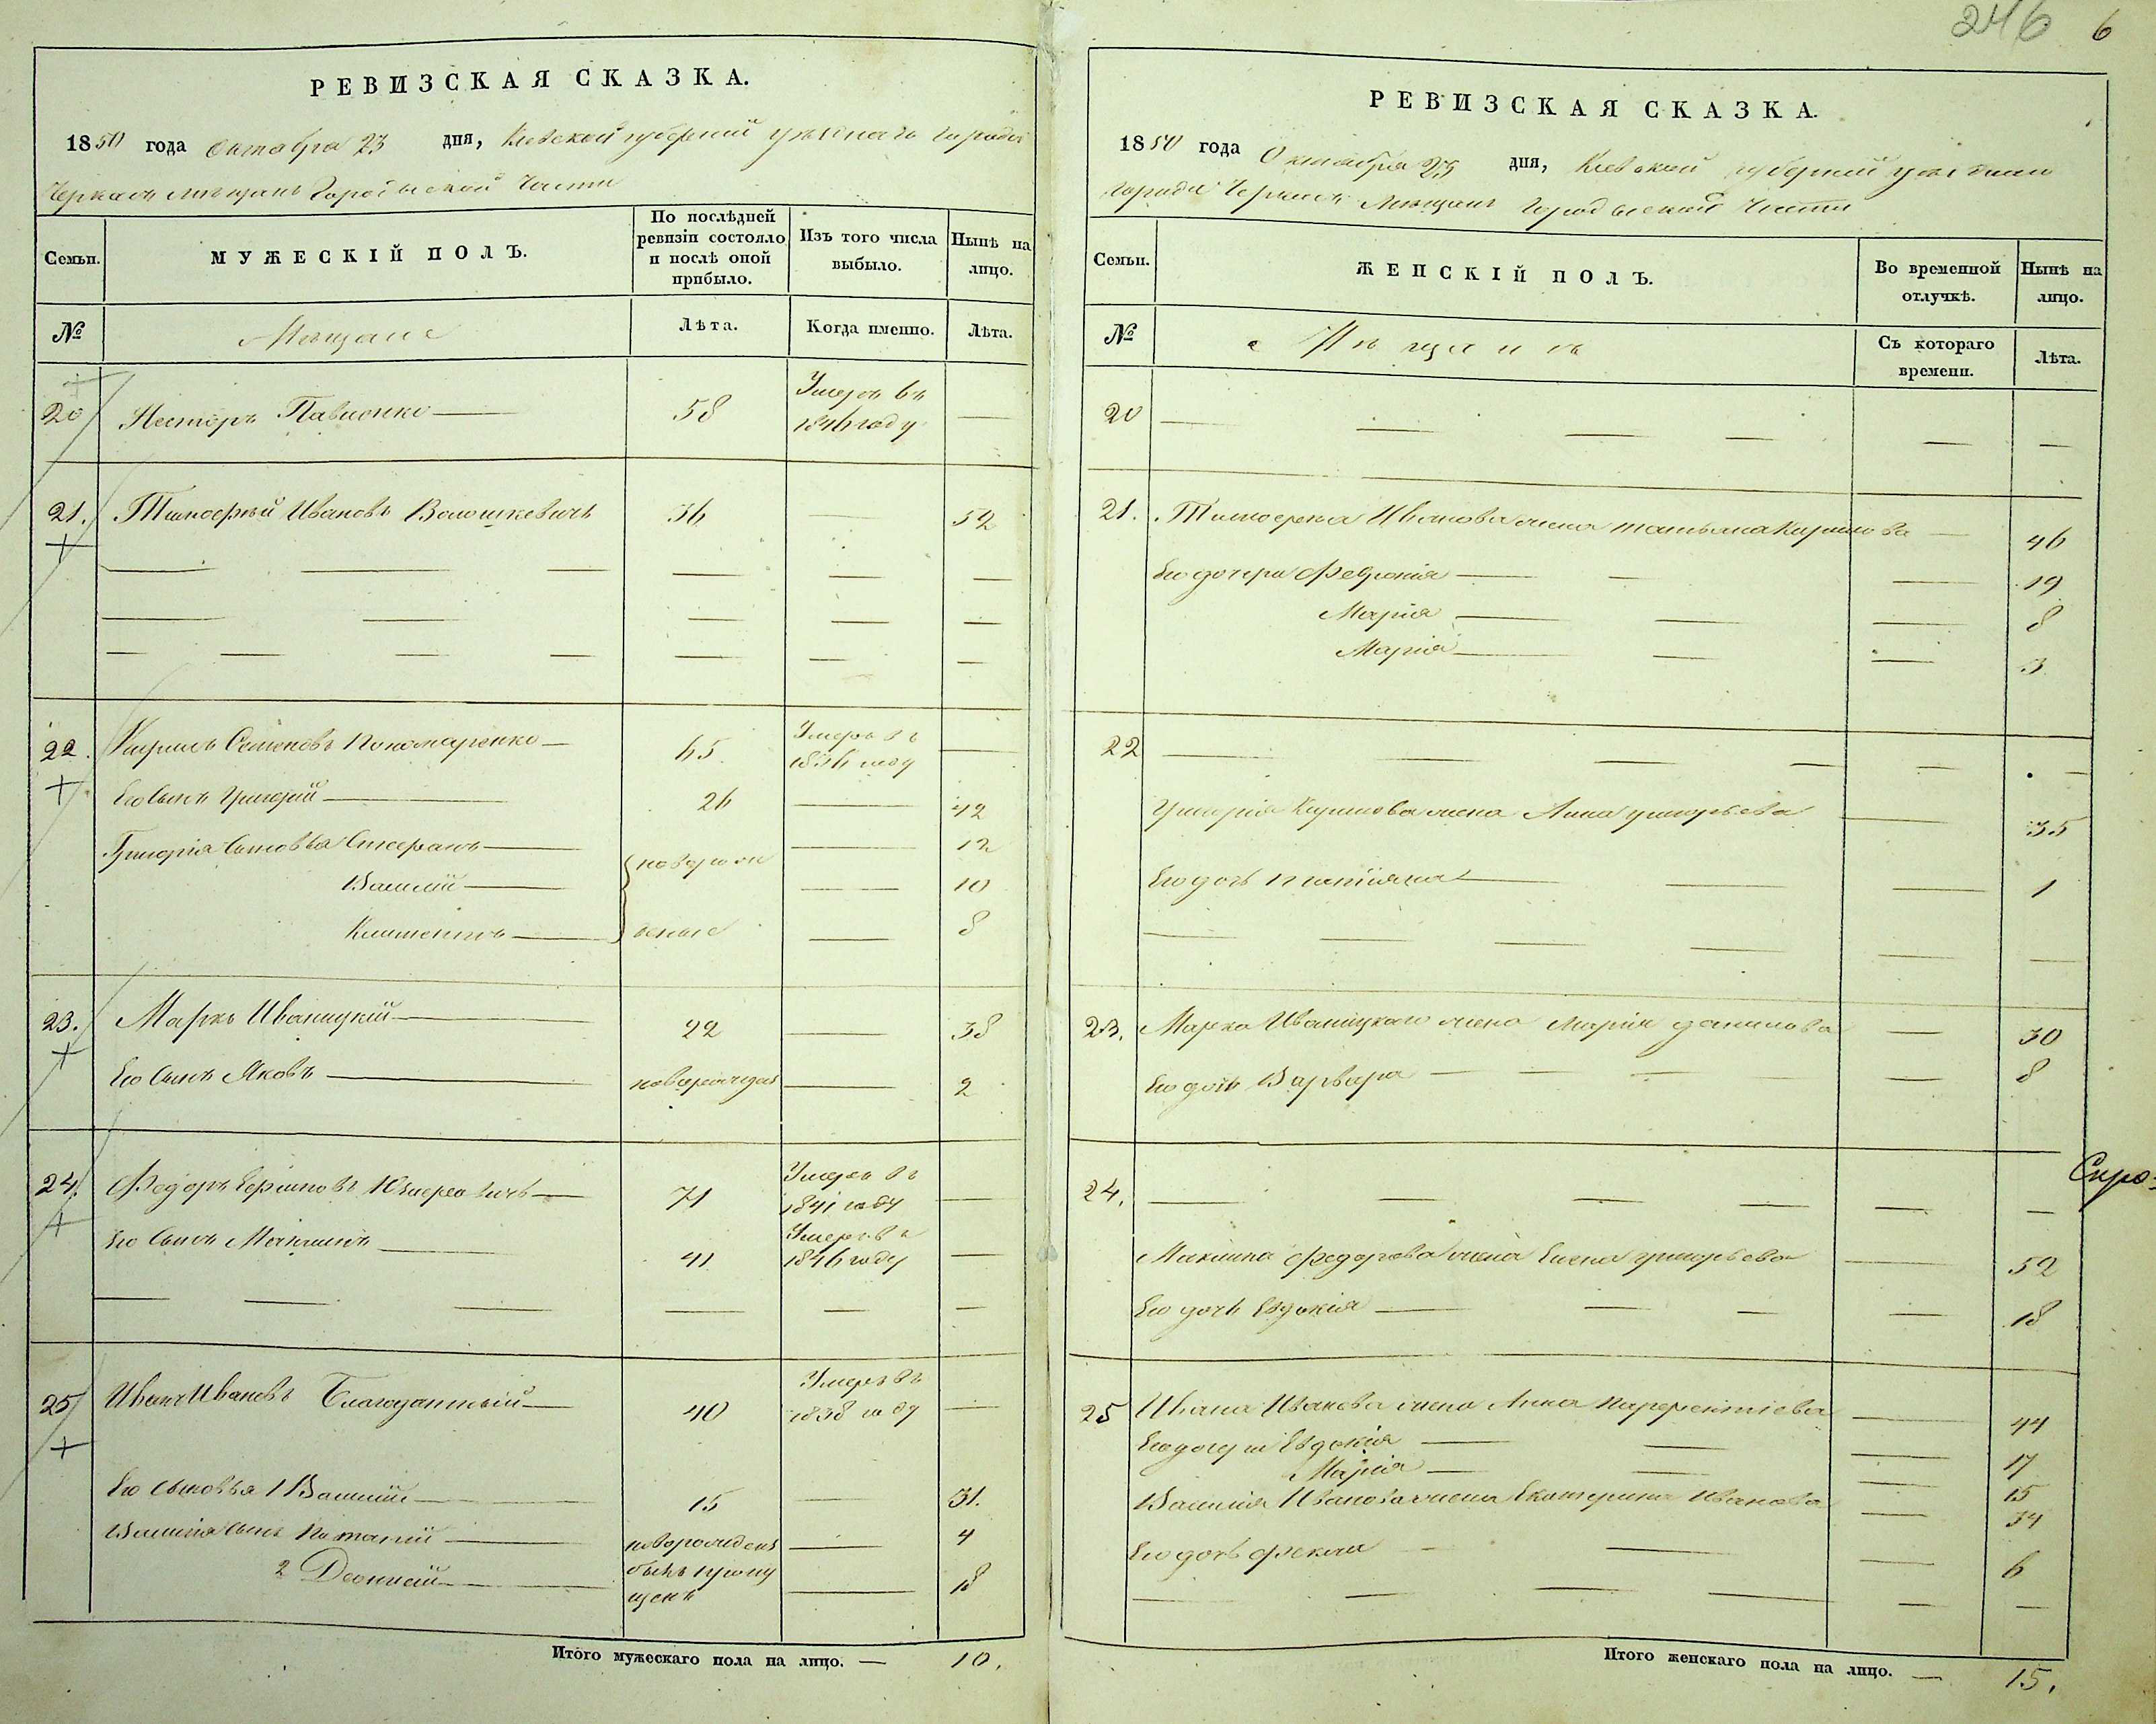 246 6
РЕВИЗСКАЯ СКАЗКА.
1850 года Октября 23 дня, Кіевской губерніи уѣзднаго города
Черкасъ мѣщанъ Городыской Части
Семьи.
МУЖЕСКІЙ ПОЛЪ.
По послѣдней
ревизіи состояло
и послѣ оной
прибыло.
Изъ того числа
выбыло.
Нынѣ на
лицо.
№
Мѣщане
Лѣта.
Когда именно.
Лѣта.
20 Несторъ Павленко — 58 Умеръ въ
1846 году —
21. Тимоѳей Ивановъ Волошкевичъ 36 — 52
22. Кирилъ Семеновъ Пономаренко — 65 Умеръ въ
1836 году —
Его Сынъ Григорій — 26 — 42
Григорія Сыновья Стефанъ — новорож — 12
Василій — — 10
Климентъ — денные — 8
23. Марко Иваницкій — 22 — 38
Его Сынъ Яковъ — новорожден — 2
24. Федоръ Ефимовъ — 71 Умеръ въ
1841 году —
Его Сынъ Максимъ — 41 Умеръ въ
1846 году —
25 Иванъ Ивановъ Благодатный — 40 Умеръ въ
1838 году —
Его сыновья 1 Василій — 15 — 31.
Василія сынъ Потапій — новорожденъ — 4
2 Діонисій — былъ пропу
щенъ — 18
Итого мужескаго пола на лицо. — 10.
РЕВИЗСКАЯ СКАЗКА.
1850 года Октября 23 дня, Кіевской губерніи уѣзднаго
города Черкасъ Мѣщанъ Городыской Части
Семьи.
ЖЕНСКІЙ ПОЛЪ.
Во временной
отлучкѣ.
Нынѣ на
лицо.
№
Мѣщанъ
Съ котораго
времени.
Лѣта.
20
21. Тимоѳея Иванова жена Татьяна Кирилова — 46
Его дочери Феврония — 19
Марія — 8
Марія — 3
22
Григорія Кирилова жена Анна Григорьева — 35
Его дочь Татіяна — 1
23. Марка Иваницкаго жена Марія Данилова — 30
Его дочь Варвара — 8
24.
Скро:
Максима Федорова жена Елена Григорьева — 52
Его дочь Евдокія — 18
25 Ивана Иванова жена Анна — 44
Его дочери Евдокія — 17
Марія — 15
Василія Иванова жена Екатерина Иванова — 34
Его дочь Фекла — 6
Итого женскаго пола на лицо. — 15.